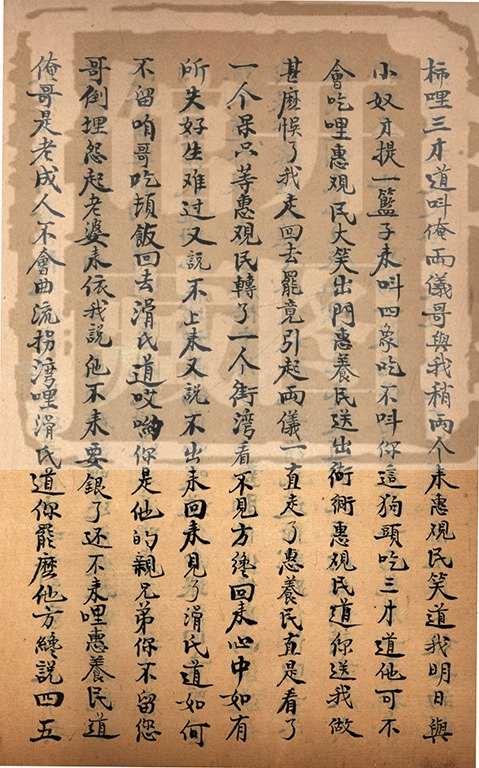 柿哩三才道叫俺兩儀哥與我稍兩个來惠观民笑道我明日與
小奴才提一籃子来叫四象吃不叫你這狗頭吃三才道他可不
會吃哩惠观民大笑出門惠養民送出衚衕惠观民道你送我做
甚麽悞了我走回去罷竟引起兩儀一直走了惠養民直是看了
一个呆只等惠观民轉了一个街湾看不見方纔回来心中如有
所失好生难过又説不上来又説不出来回来見了滑氏道如何
不留咱哥吃頓飯回去滑氏道哎喲你是他的親兄弟你不留您
哥倒埋怨起老婆来依我説他不来要銀了还不来哩惠養民道
俺哥是老成人不會曲流拐湾哩滑氏道你罷麽他方纔説四五